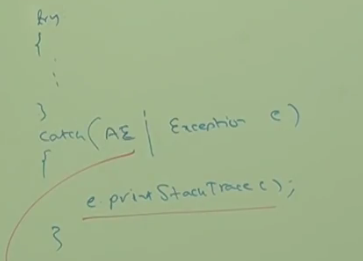 try
{
⋮
}
catch(AE | Exception e)
{
e.printStackTrace();
}